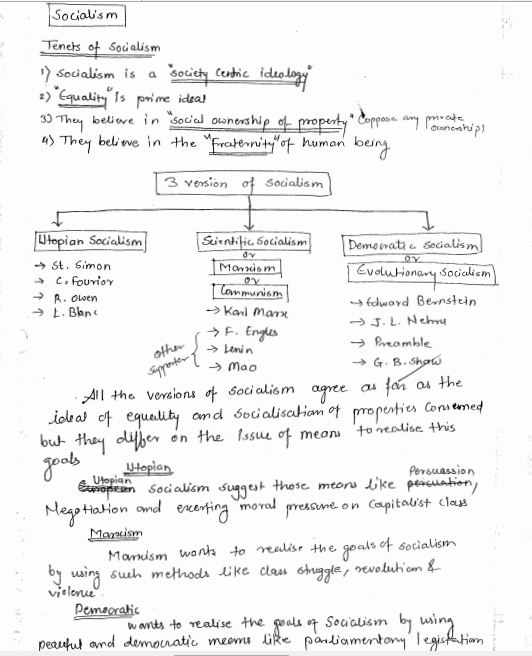 Socialism
Tenets of Socialism
1) Socialism is a "society centric ideology"
2) "Equality" is prime ideal
3) They believe in "social ownership of property" (oppose any private ownership)
4) They believe in the "Fraternity" of human being
3 version of Socialism
Utopian Socialism
→ St. Simon
→ C. Fourior
→ R. Owen
→ L. Blanc
Scientific Socialism
or
Marxism
or
Communism
→ Karl Marx
other supporter
→ F. Engles
→ Lenin
→ Mao
Democratic Socialism
or
Evolutionary Socialism
→ Edward Bernstein
→ J. L. Nehru
→ Preamble
→ G. B. Shaw
All the versions of Socialism agree as far as the
ideal of equality and socialisation of properties Conserned
but they differ on the issue of means to realise this
goals
Utopian
Utopian socialism suggest those means like Persuassion,
Negotiation and exerting moral pressure on Capitalist class
Marxism
Marxism wants to realise the goals of socialism
by using such methods like class struggle, revolution &
violence.
Democratic
wants to realise the goals of Socialism by using
peaceful and democratic means like parliamentary legislation